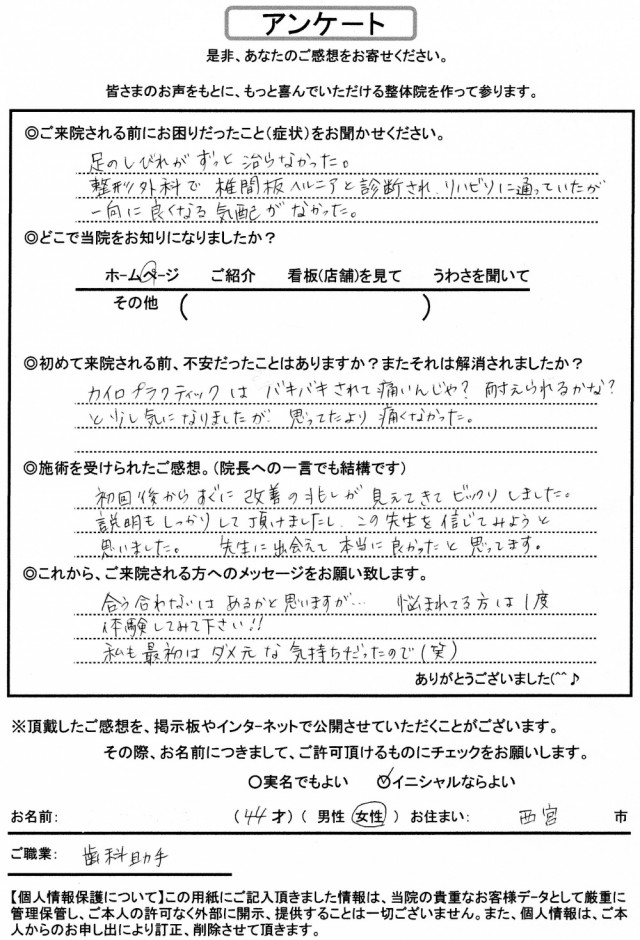 アンケート
是非、あなたのご感想をお寄せください。
皆さまのお声をもとに、もっと喜んでいただける整体院を作って参ります。
◎ご来院される前にお困りだったこと(症状)をお聞かせください。
足のしびれがずっと治らなかった。
整形外科で椎間板ヘルニアと診断され、リハビリに通っていたが
一向に良くなる気配がなかった。
◎どこで当院をお知りになりましたか？
ホームページ ご紹介 看板(店舗)を見て うわさを聞いて
その他 ( )
◎初めて来院される前、不安だったことはありますか？またそれは解消されましたか？
カイロプラクティックは バキバキされて痛いんじゃ？ 耐えられるかな？
と少し気になりましたが 思ってたより痛くなかった。
◎施術を受けられたご感想。(院長への一言でも結構です)
初回後からすぐに改善の兆しが見えてきてビックリしました。
説明もしっかりして頂けましたし、この先生を信じてみようと
思いました。 先生に出会えて本当に良かったと思ってます。
◎これから、ご来院される方へのメッセージをお願い致します。
合う合わないはあるかと思いますが… 悩まれてる方は1度
体験してみて下さい!!
私も最初はダメ元な気持ちだったので(笑)
ありがとうございました(^^♪
※頂戴したご感想を、掲示板やインターネットで公開させていただくことがございます。
その際、お名前につきまして、ご許可頂けるものにチェックをお願いします。
○実名でもよい ○イニシャルならよい
お名前: (44才) (男性 女性) お住まい: 西宮 市
ご職業: 歯科助手
【個人情報保護について】この用紙にご記入頂きました情報は、当院の貴重なお客様データとして厳重に
管理保管し、ご本人の許可なく外部に開示、提供することは一切ございません。また、個人情報は、ご本
人からのお申し出により訂正、削除させて頂きます。